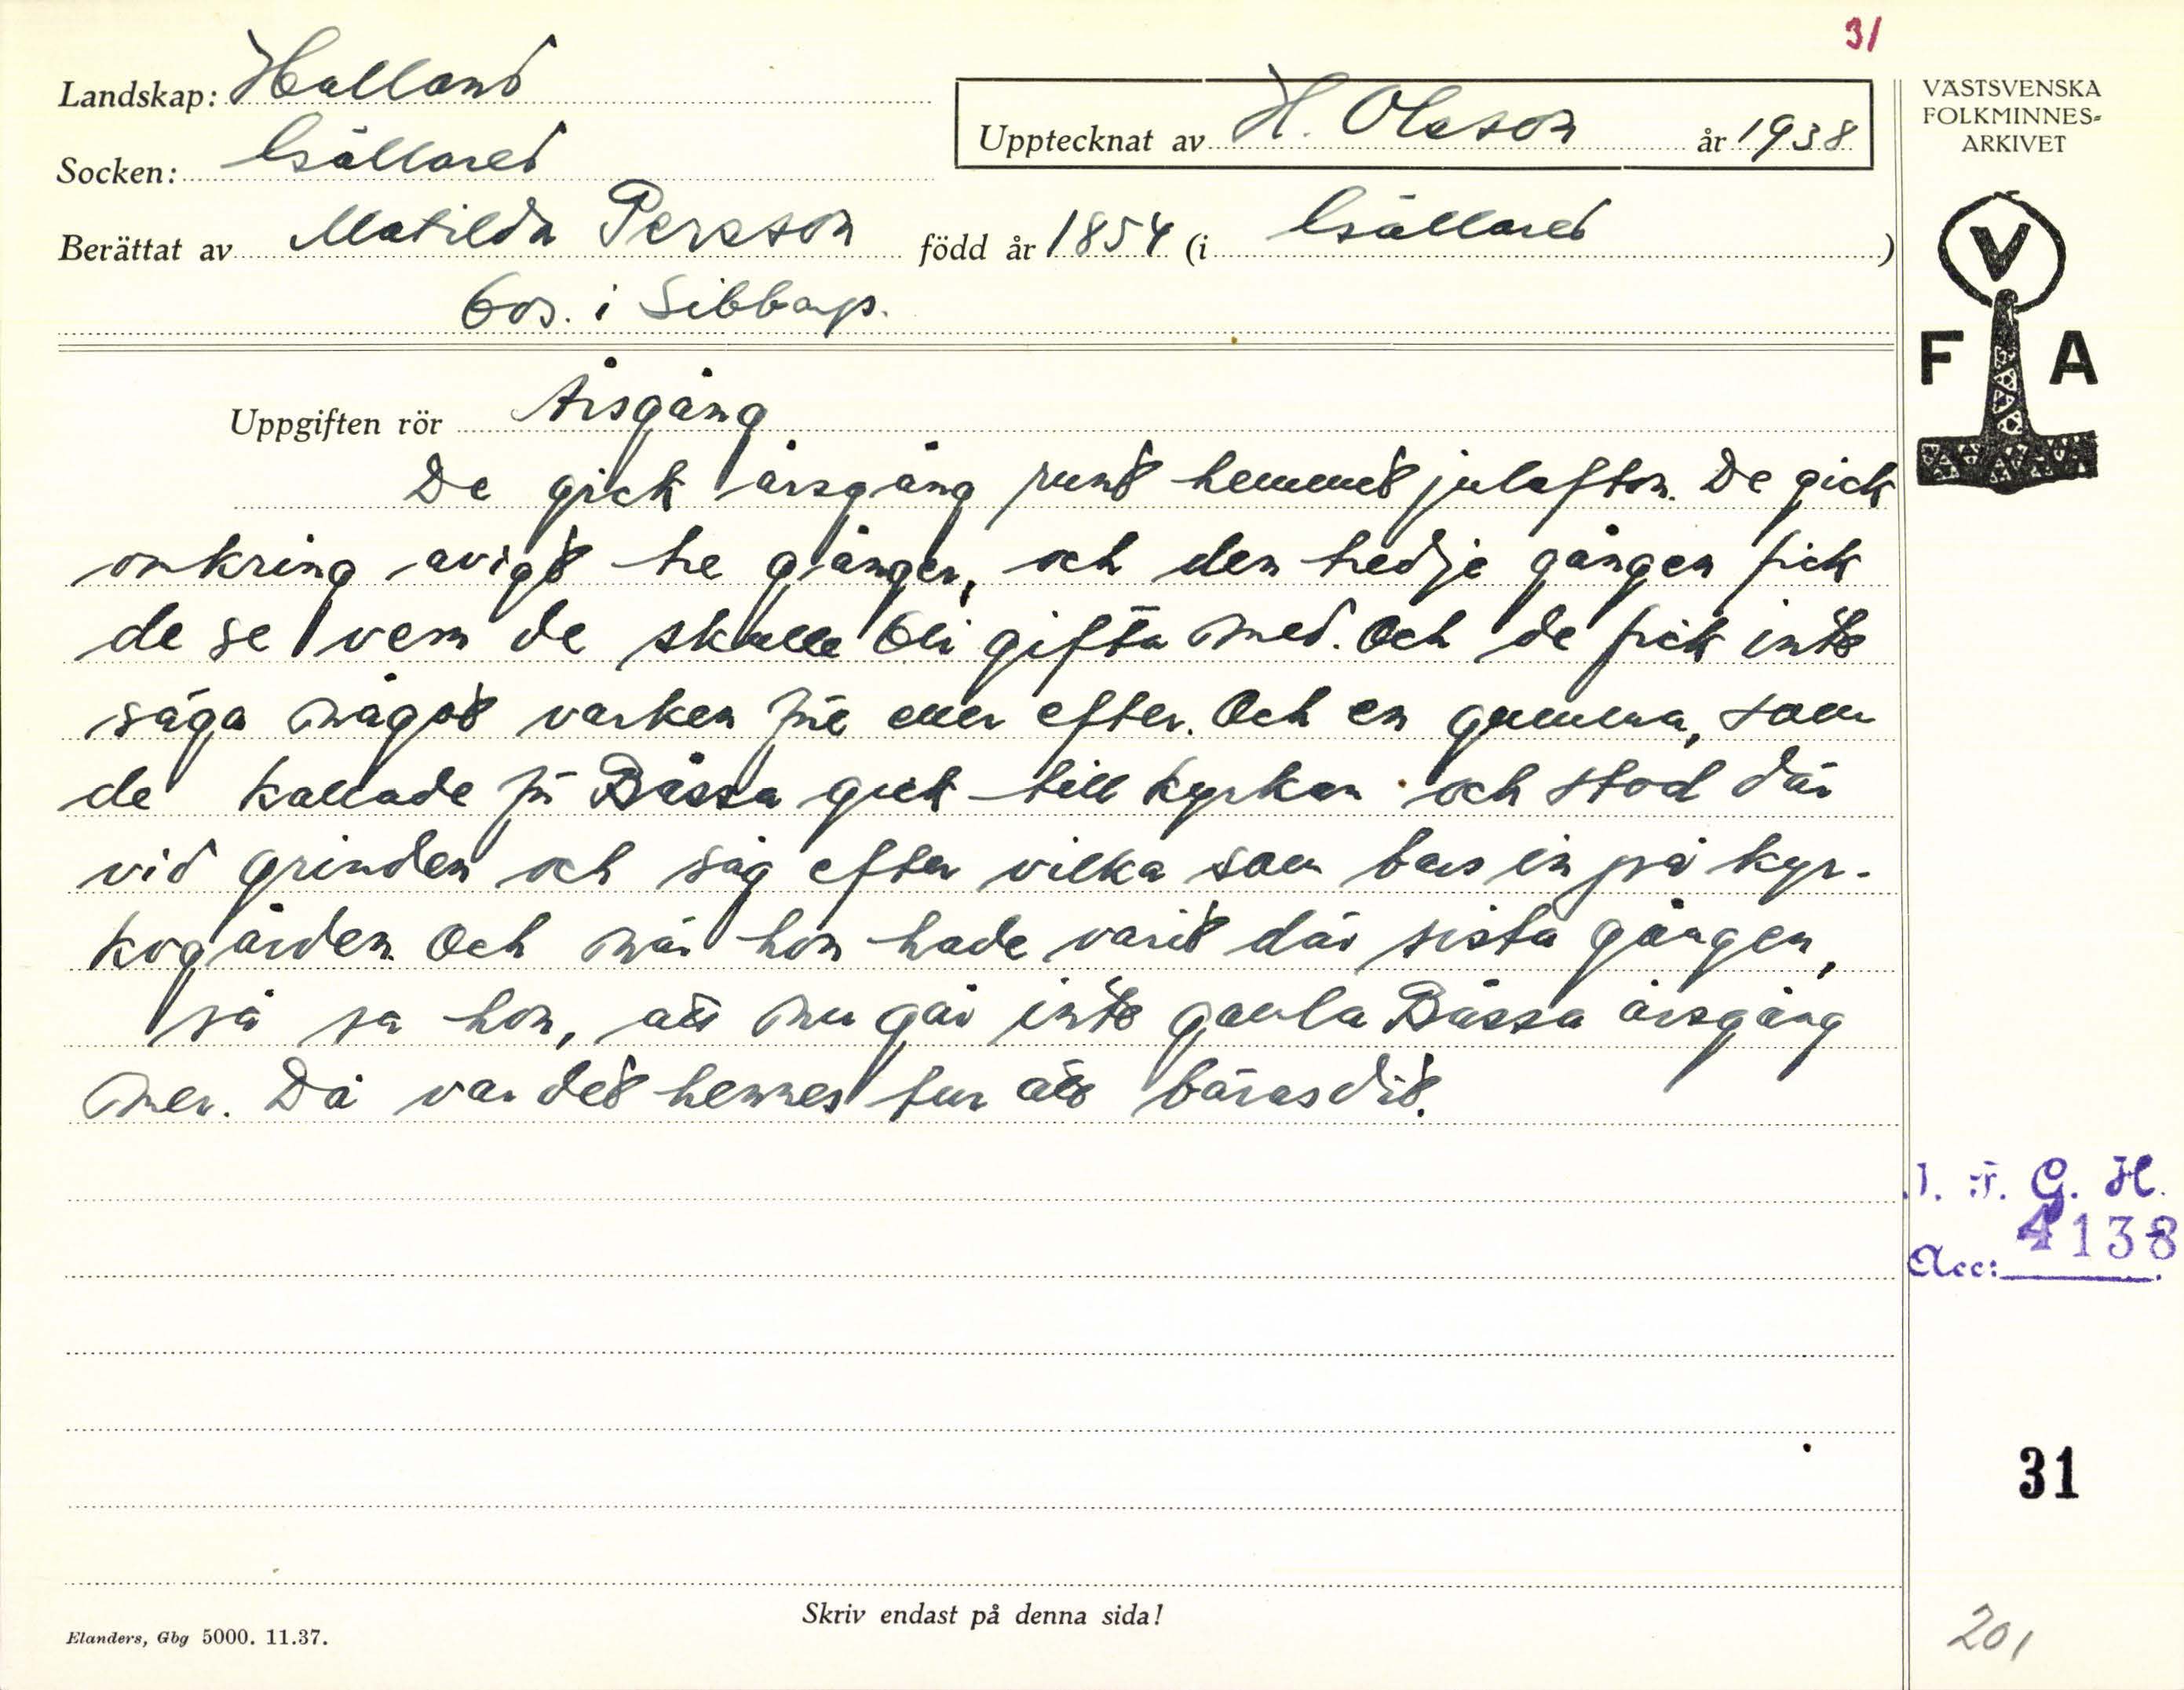 31
Landskap: Halland
Socken: Gällared
Upptecknat av H. Olsson år 1938
Berättat av Matilda Persson född år 1854 (i Gällared)
bos. i Sibbarp.
VÄSTSVENSKA
FOLKMINNES=
ARKIVET
V
F A
Uppgiften rör Årsgång
De gick årsgång runt hemmet julafton. De gick
omkring avigt tre gånger, och den tredje gången fick
de se vem de skulle bli gifta med. Och de fick inte
säga något varken före eller efter. Och en gumma, som
de kallade för Båssa gick till kyrkan och stod där
vid grinden och såg efter vilka som bars in på kyr-
kogården. Och när hon hade varit där sista gången,
så sa hon, att nu går inte gamla Båssa årsgång
mer. Då var det hennes tur att bäras dit.
I. F. G. H.
Acc: 4138
31
Skriv endast på denna sida!
Elanders, Gbg 5000. 11.37.
201